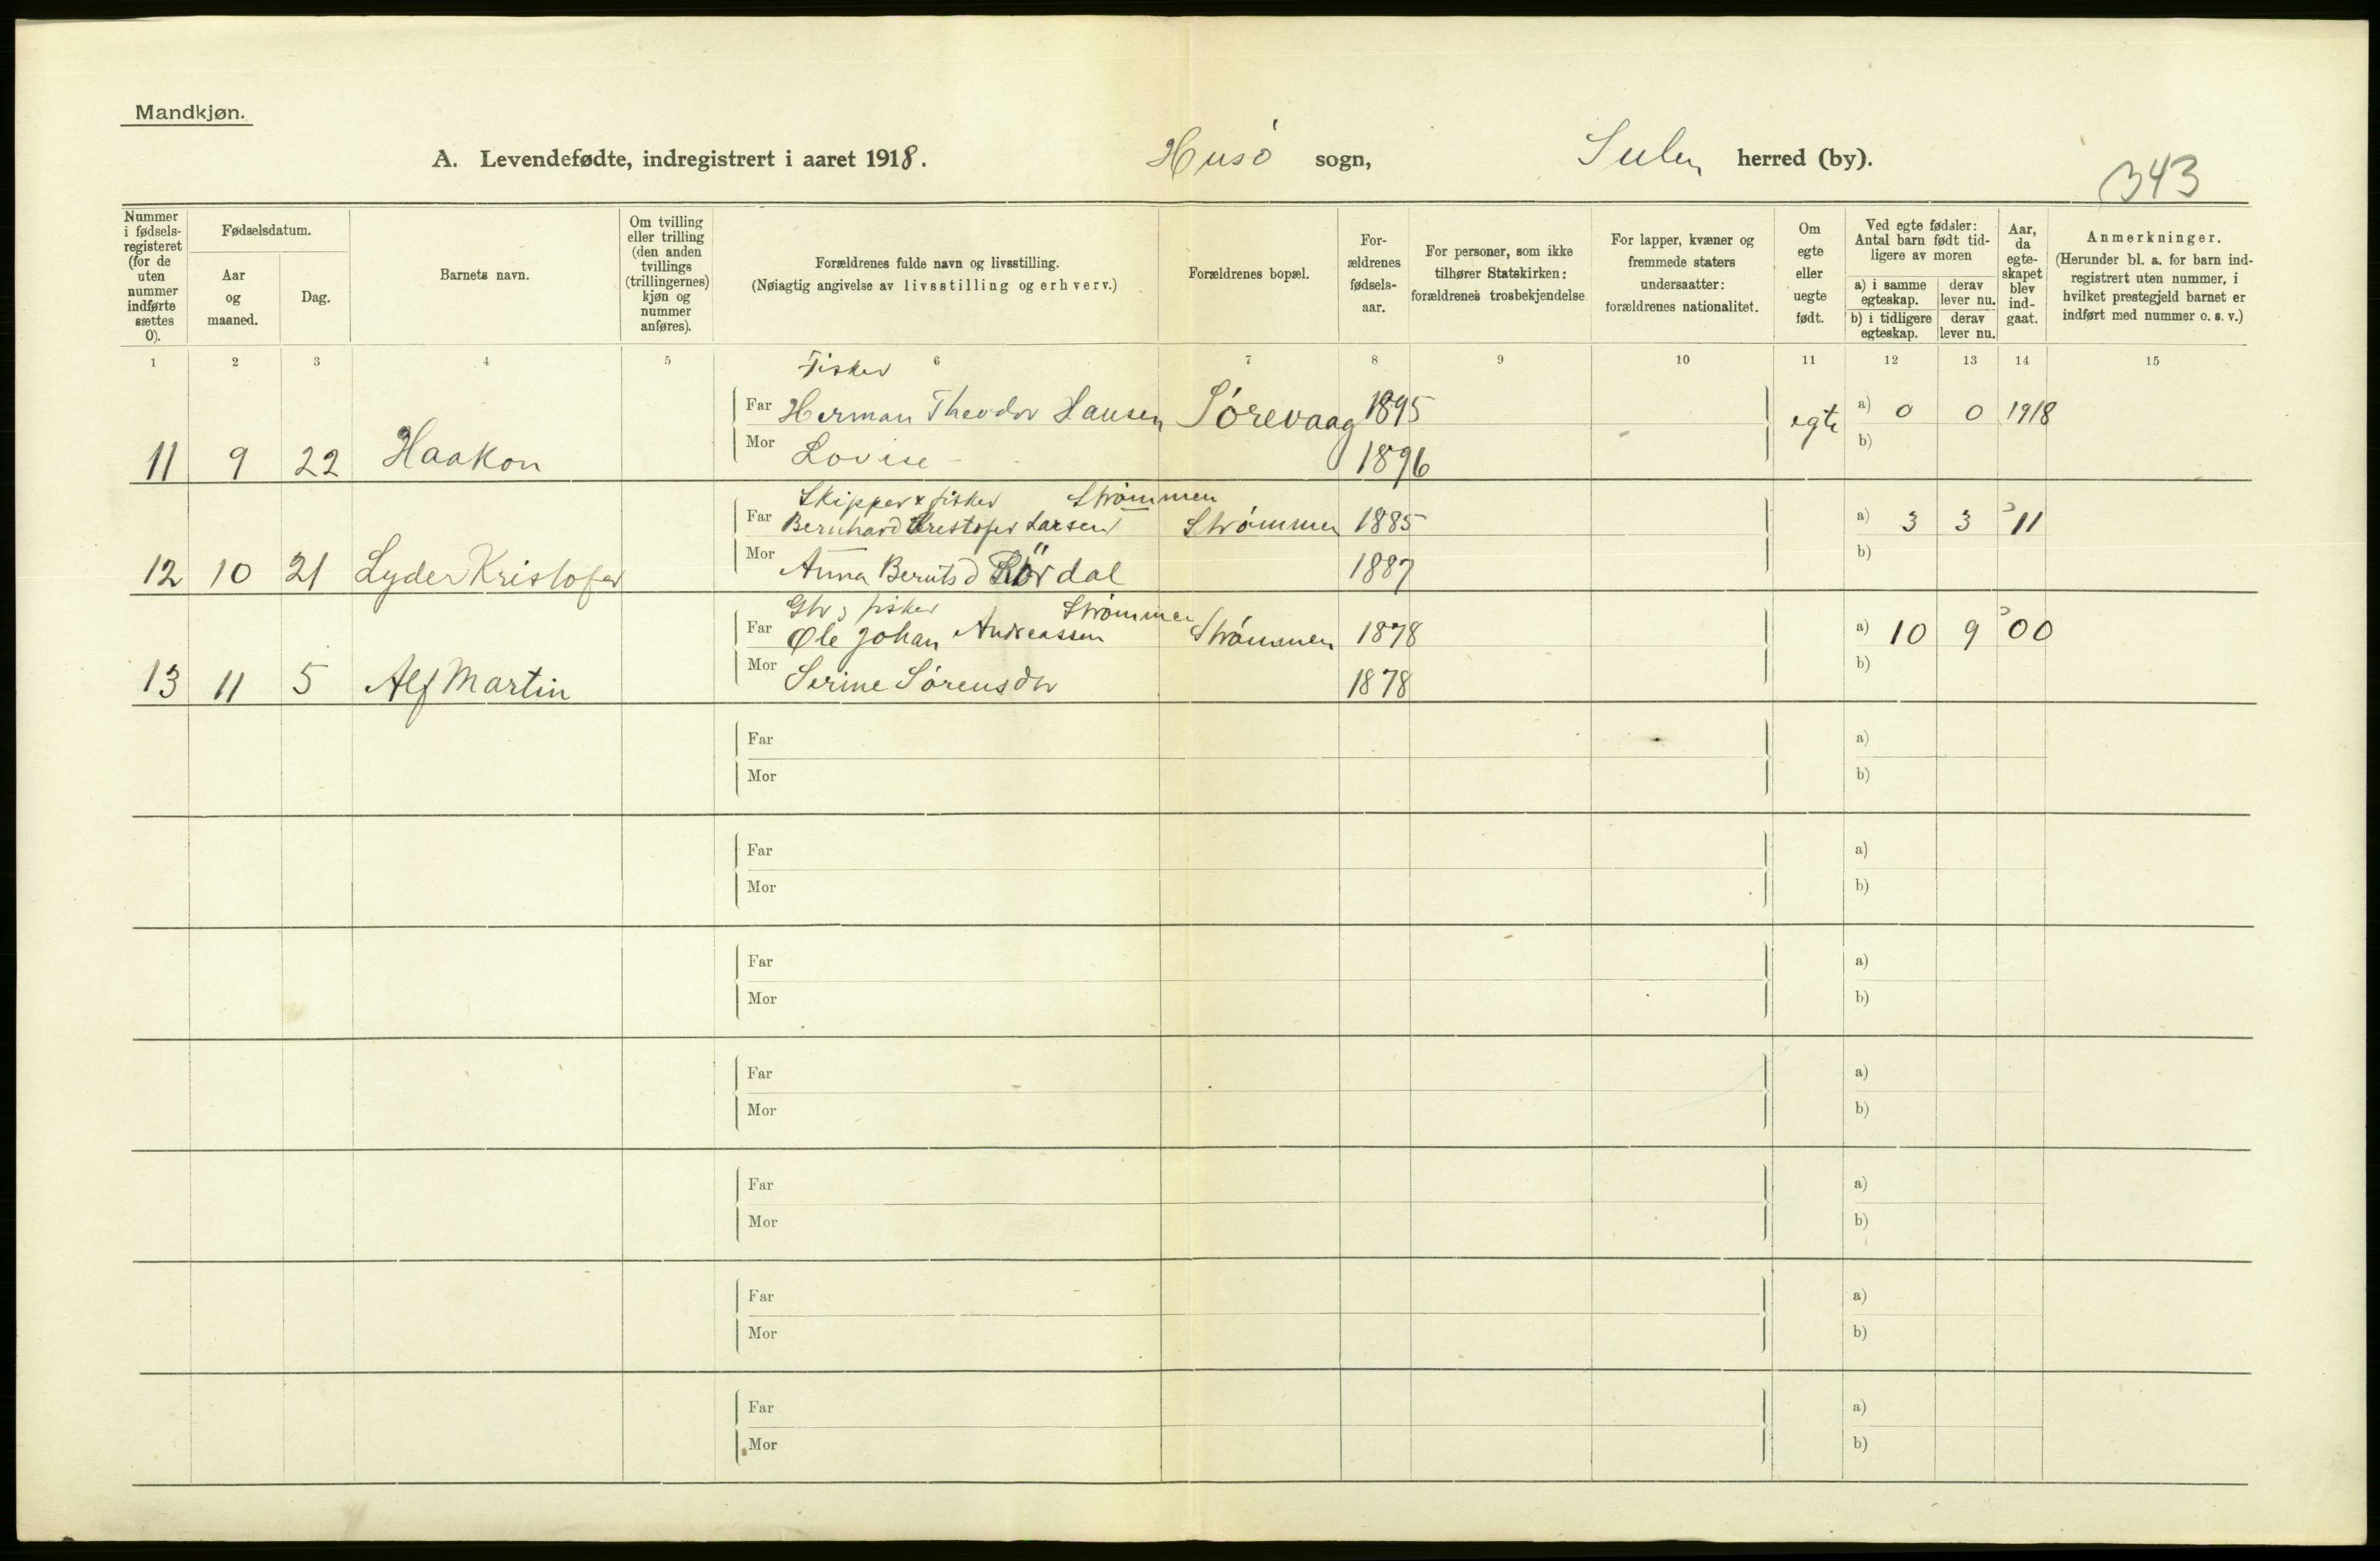 Mandkjøn.
A. Levendefødte, indregistrert i aaret 1918. Husø sogn, Sulen herred (by).
343
Nummer i fødsels-registeret (for de uten nummer indførte sættes 0).
Fødselsdatum.
Aar og maaned.
Dag.
Barnets navn.
Om tvilling eller trilling (den anden tvillings (trillingernes) kjøn og nummer anføres).
Forældrenes fulde navn og livsstilling.
(Nøiagtig angivelse av livsstilling og erhverv.)
Forældrenes bopæl.
For-ældrenes fødsels-aar.
For personer, som ikke tilhører Statskirken: forældrenes trosbekjendelse
For lapper, kvæner og fremmede staters undersaatter: forældrenes nationalitet.
Om egte eller uegte født.
Ved egte fødsler: Antal barn født tid-ligere av moren
a) i samme egteskap.
derav lever nu.
b) i tidligere egteskap.
derav lever nu.
Aar, da egte-skapet blev ind-gaat.
Anmerkninger.
(Herunder bl. a. for barn ind-registrert uten nummer, i hvilket prestegjeld barnet er indført med nummer o. s. v.)
1 2 3 4 5 6 7 8 9 10 11 12 13 14 15
Fisker
Far Herman Theodor Hansen Sørevaag 1895 egte a) 0 0 1918
11 9 22 Haakon Mor Lovise - 1896 b)
Skipper & fisker Strømmen
Far Bernhard Kristofer Larsen Strømmen 1885 a) 3 3 11
12 10 21 Lyder Kristofer Mor Anna Berntsd Rördal 1887 b)
Gbr & fisker Strømmen
Far Ole Johan Andreassen Strømmen 1878 a) 10 9 00
13 11 5 Alf Martin Mor Serine Sørensdtr 1878 b)
Far a)
Mor b)
Far a)
Mor b)
Far a)
Mor b)
Far a)
Mor b)
Far a)
Mor b)
Far a)
Mor b)
Far a)
Mor b)